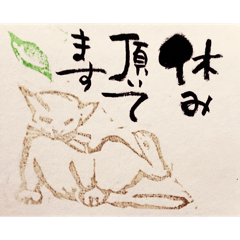 休み
頂いて
ます